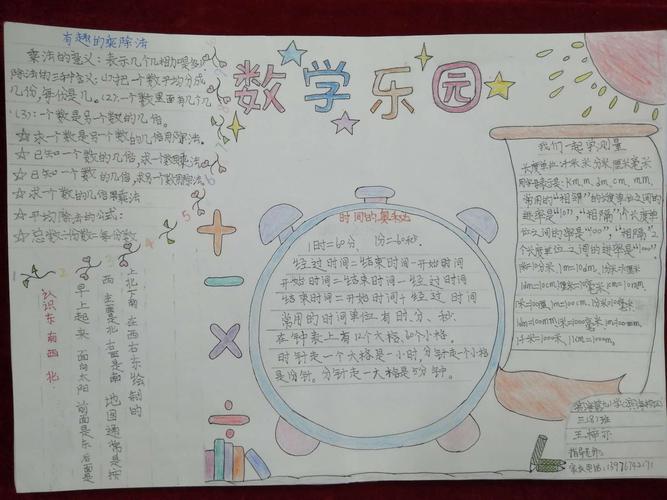 有趣的乘除法
乘法的意义：表示几个几相加
除法的三种含义：(1)把一个数平均分成
几份，每份是几。(2)一个数里面有几个几
(3)：一个数是另一个数的几倍。
☆求一个数是另一个数的几倍用除法。
☆已知一个数的几倍，求一个数用除法
☆已知一个数的几倍，求另个数用除法
☆求个数的几倍用乘法
☆平均除法的公式：
☆总数÷份数=每份数
1
2
3
4
5
6
认识东南西北
早上起来 面向太阳 前面是东 后面是
西 左面是北 右面是南 地图通常是按
上北下南 左西右东绘制的
数学乐园
＋
－
×
÷
时间的奥秘
1时=60分， 1分=60秒.
经过时间=结束时间－开始时间
开始时间=结束时间－经过时间
结束时间=开始时间＋经过时间
常用的时间单位有时、分、秒.
在钟表上有12个大格、60个小格.
时针走一个大格是一小时，分针走一个小格
是1分钟。分针走一大格是5分钟。
我们一起学测量
长度单位：千米 米 分米 厘米 毫米
用字母表示：km. m. dm. cm. mm.
常用的"相邻"的长度单位之间的
进率是"10"，"相隔"1个长度单
位之间的率是"100"，"相隔"2
个长度单位之间的进率是"1000"。
1米=10分米 1m=10dm,
1千米=1000米, 1km=1000m。
三(8)班
指导老师：